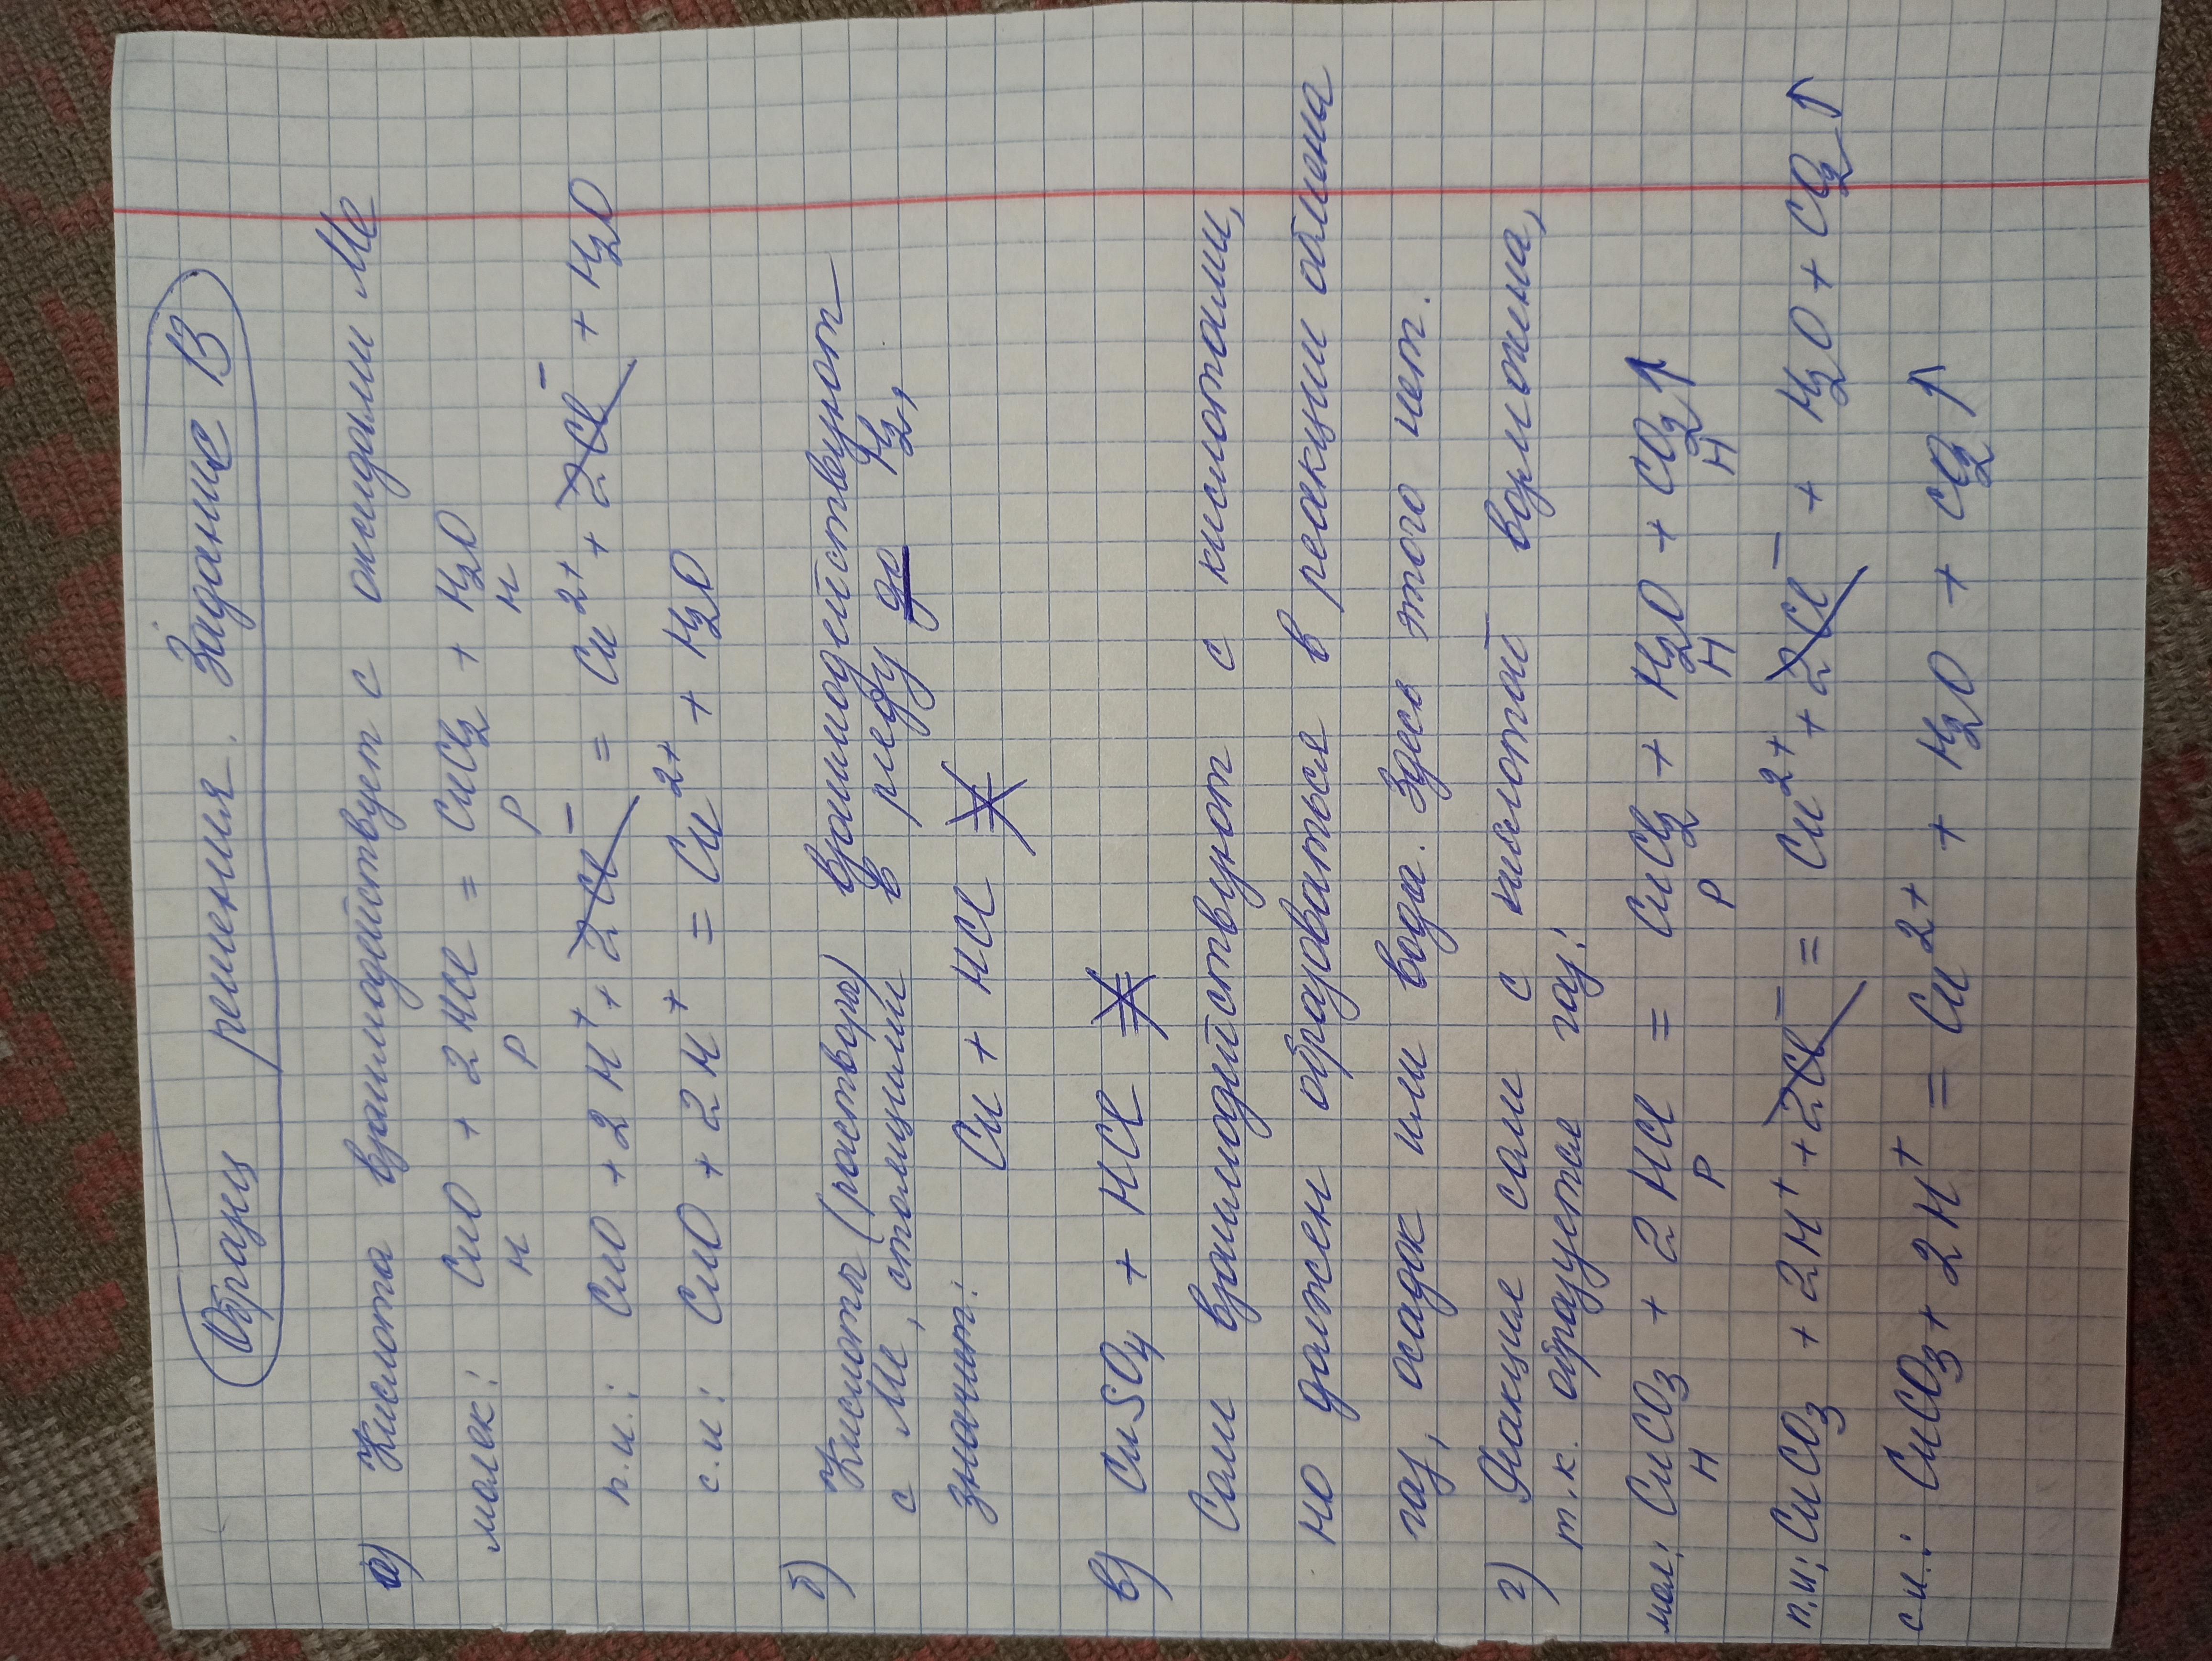 Образец решения. Задание В
а) Кислота взаимодействует с оксидами Ме
молек: CuO + 2HCl = CuCl₂ + H₂O
н р р н
п.и.: CuO + 2H⁺ + 2Cl⁻ = Cu²⁺ + 2Cl⁻ + H₂O
с.и: CuO + 2H⁺ = Cu²⁺ + H₂O
б) Кислоты (растворы) взаимодействуют
с Ме, стоящими в ряду до H₂,
значит: Cu + HCl ≠
в) CuSO₄ + HCl ≠
Соли взаимодействуют с кислотами,
но должен образоваться в реакции обмена
газ, осадок или вода. Здесь этого нет.
г) Реакция соли с кислотой возможна,
т.к. образуется газ:
мол: CuCO₃ + 2HCl = CuCl₂ + H₂O + CO₂↑
Н Р Р Н Н
п.и: CuCO₃ + 2H⁺ + 2Cl⁻ = Cu²⁺ + 2Cl⁻ + H₂O + CO₂↑
с.и.: CuCO₃ + 2H⁺ = Cu²⁺ + H₂O + CO₂↑